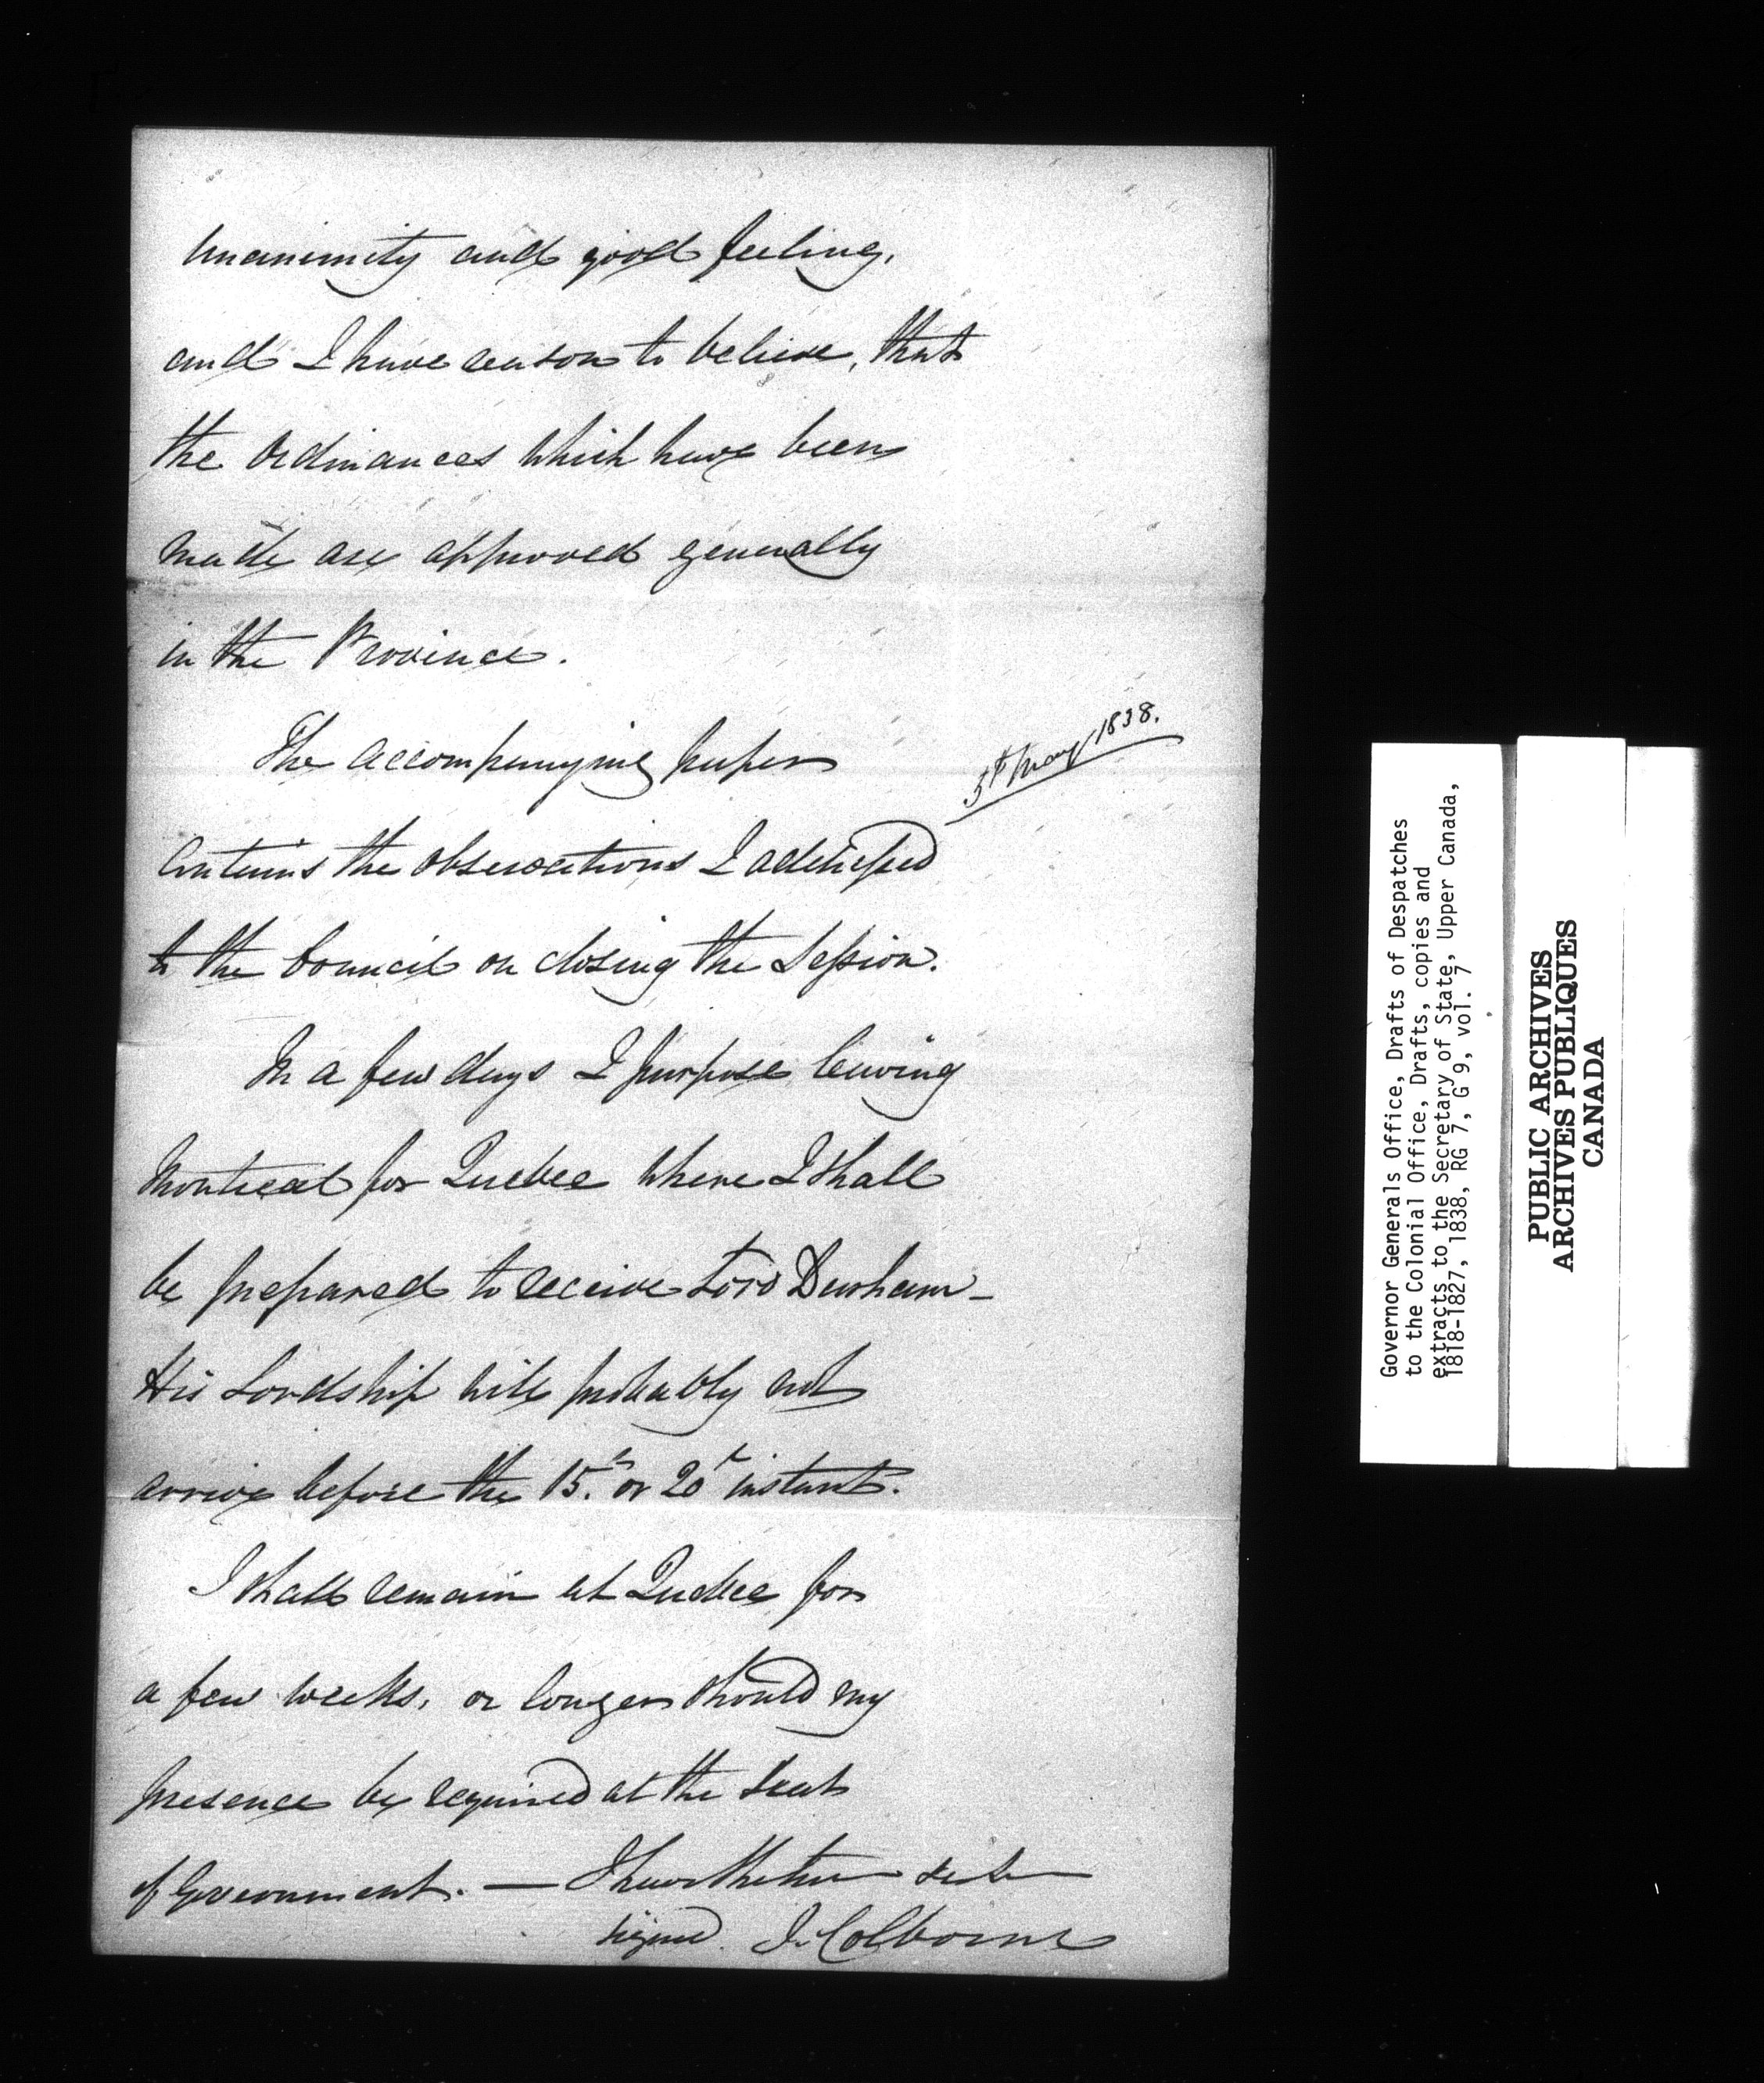 unanimity and good feeling,
and I have reason to believe, that
the Ordinances which have been
made are approved generally
in the Province.
The accompanying paper
5th May 1838.
Contains the observations I addressed
to the Council on closing the Session.
In a few days I purpose leaving
Montreal for Quebec where I shall
be prepared to receive Lord Durham_
His Lordship will probably not
arrive before the 15th or 20th instant.
I shall remain at Quebec for
a few weeks, or longer should my
presence be required at the Seat
of Government. — I have the honor
signed. J. Colborne
Governor Generals Office, Drafts of Despatches
to the Colonial Office, Drafts, copies and
extracts to the Secretary of State, Upper Canada,
1818-1827, 1838, RG 7, G 9, vol. 7
PUBLIC ARCHIVES
ARCHIVES PUBLIQUES
CANADA